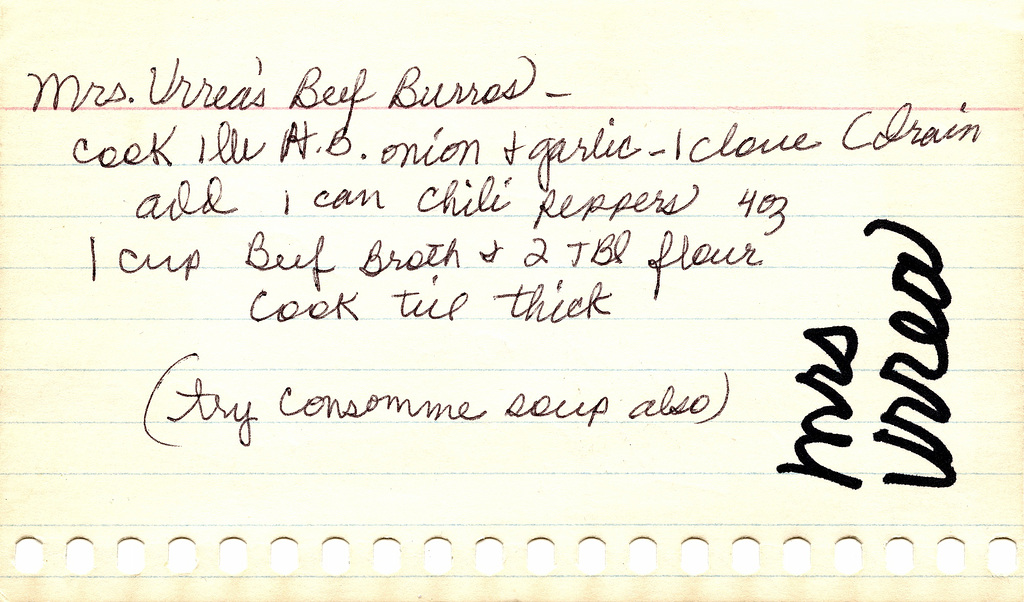 Mrs. Urrea's Beef Burros -
cook 1 lb H.B. onion & garlic - 1 clove (drain
add 1 can chili peppers 4oz
1 cup Beef Broth & 2 TBl flour
Cook till thick
(try consomme soup also)
Mrs
Urrea